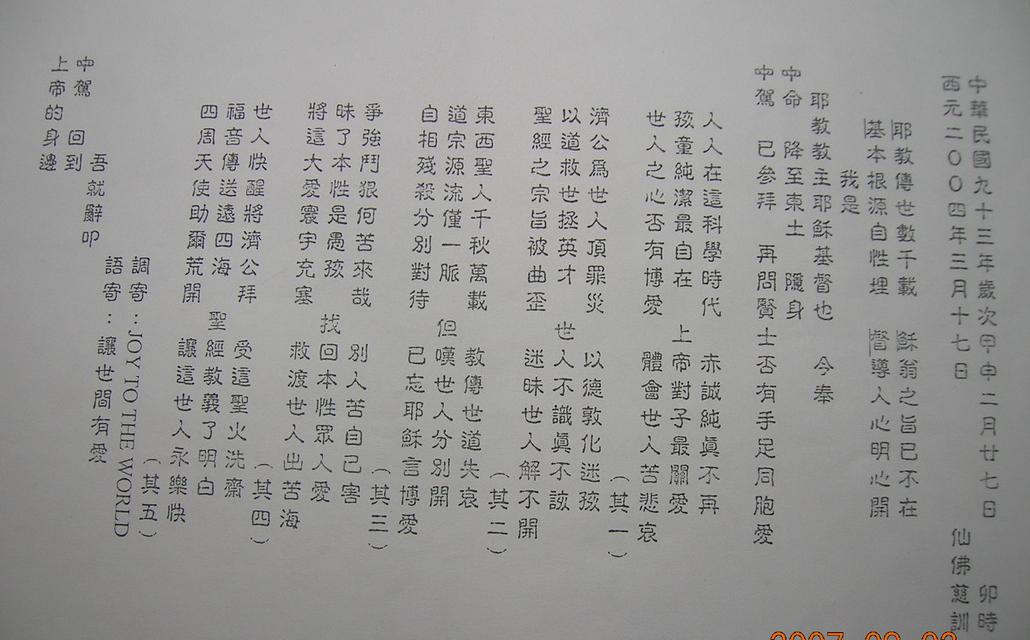 中華民國九十三年歲次甲申二月廿七日 卯時
西元二００四年三月十七日 仙佛慈訓
耶教傳世數千載 穌翁之旨已不在
基本根源自性埋 督導人心明心開
我是
耶教教主耶穌基督也 今奉
中命 降至東土 隱身
中駕 已參拜 再問賢士否有手足同胞愛
人人在這科學時代 赤誠純真不再
孩童純潔最自在 上帝對子最關愛
世人之心否有博愛 體會世人苦悲哀
（其一）
濟公為世人頂罪災 以德敦化迷孩
以道救世拯英才 世人不識真不該
聖經之宗旨被曲歪 迷昧世人解不開
（其二）
東西聖人千秋萬載 教傳世道失哀
道宗源流僅一脈 但嘆世人分別開
自相殘殺分別對待 已忘耶穌言博愛
（其三）
爭強鬥狠何苦來哉 別人苦自己害
昧了本性是愚孩 找回本性眾人愛
將這大愛寰宇充塞 救渡世人出苦海
（其四）
世人快醒將濟公拜 受這聖火洗齋
福音傳送遠四海 聖經教義了明白
四周天使助爾荒開 讓這世人永樂快
（其五）
調寄：JOY TO THE WORLD
語寄：讓世間有愛
吾就辭叩
中駕 回到
上帝的身邊